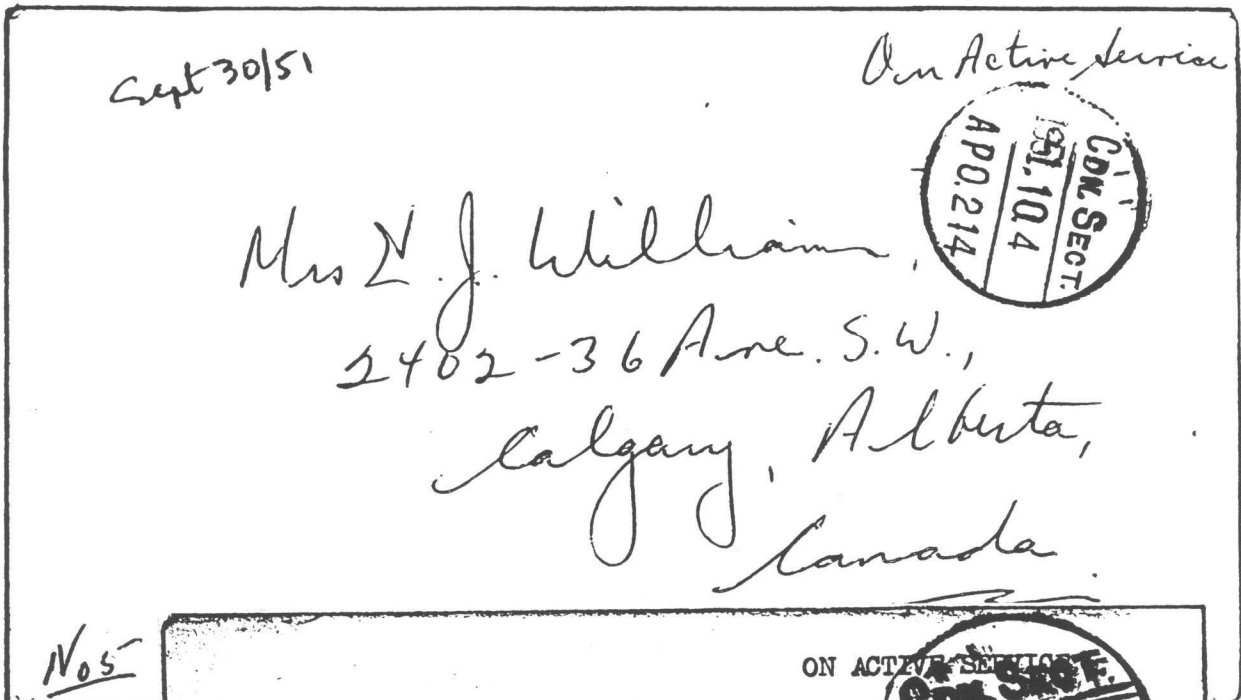 Sept 30/51
On Active Service
CDN. SECT.
1951.10.4
APO.214
Mrs J. Williams,
2402-36 Ave. S.W.,
Calgary, Alberta,
Canada.
No 5
ON ACTIVE SERVICE
CDN. SECT.